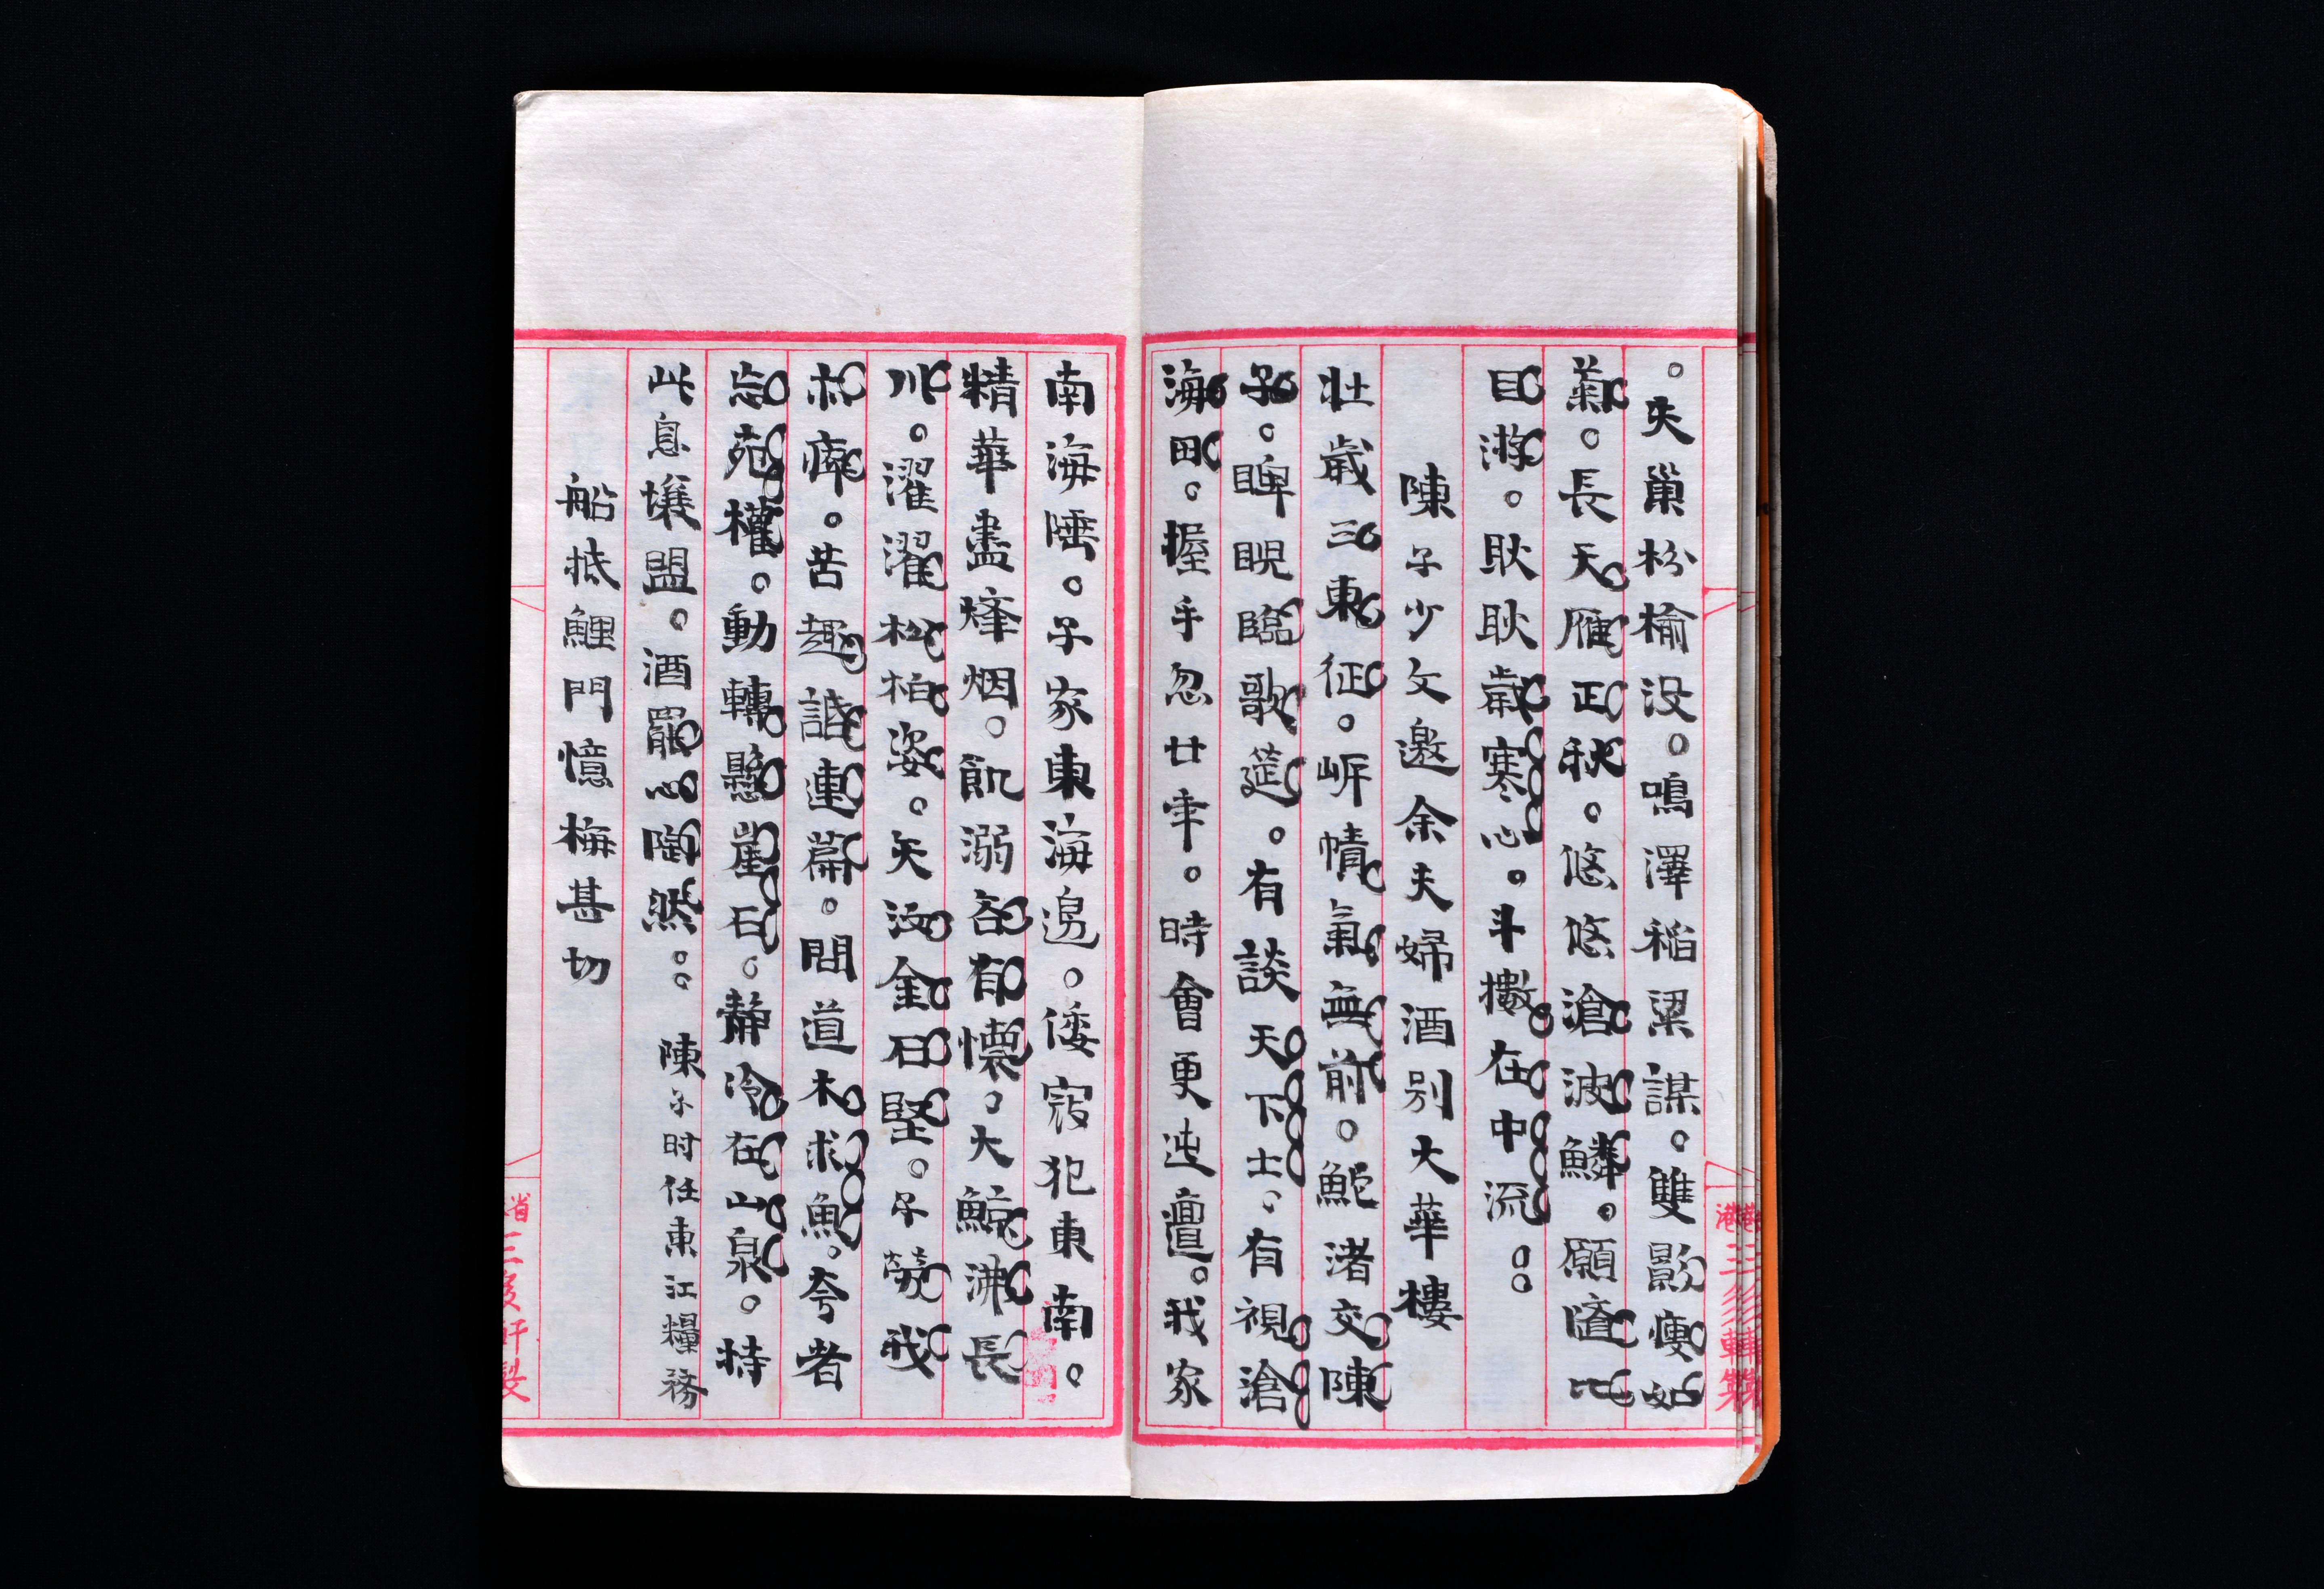 。失巢枌榆没。鳴澤稻粱謀。雙影瘦如
菊。長天雁正秋。悠悠滄波鱗。願隨比
目游。耿耿歲寒心。斗擻在中流。。
陳子少文邀余夫婦酒別大華樓
壯歲三東征。岍幘氣無前。鮀渚交陳
子。睥睨臨歌筵。有談天下士。有視滄
海田。握手忽廿年。時會更迍邅。我家
南海唾。子家東海邊。倭寇犯東南。
精華盡烽烟。飢溺郤郁懷。大鯨沸長
川。濯濯松柏姿。矢汝金石堅。子勞我
亦瘁。苦趣話連篇。問道木求魚。夸者
忘苑權。動轉懸崖石。静冷在山泉。持
此息壤盟。酒罷心陶然。。 陳子时任東江糧務
船抵鯉門憶梅甚切
省三多軒製
港三多軒製